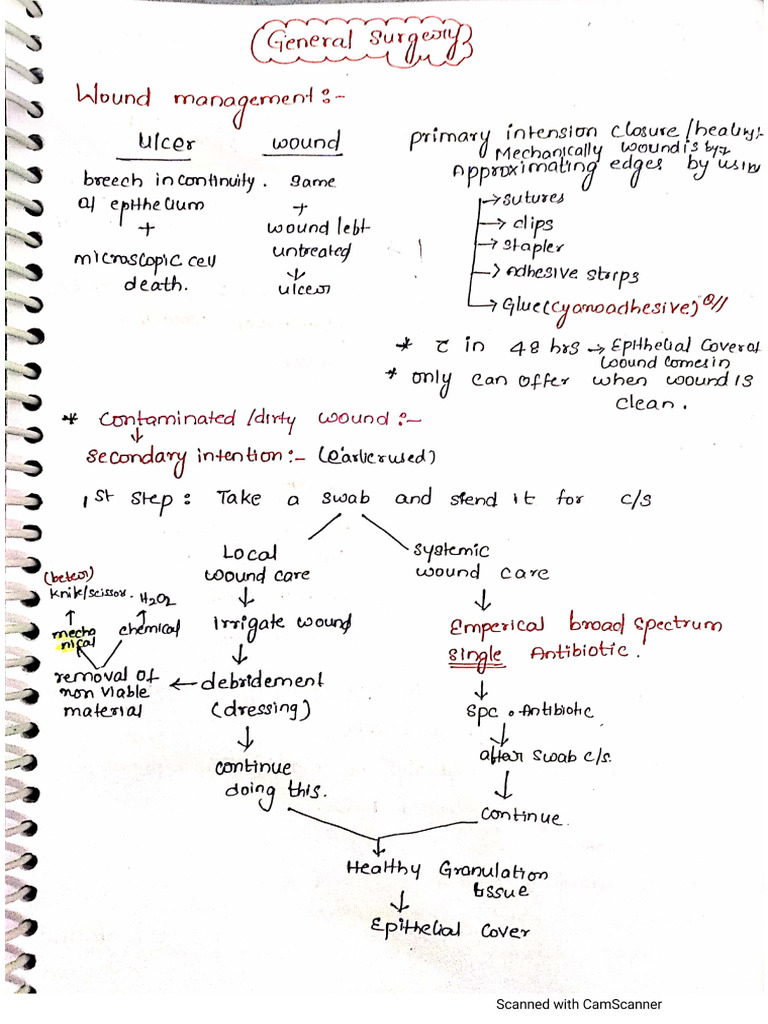 General Surgery
Wound management:-
Ulcer
breech in continuity.
of epithelium
+
microscopic cell
death.
wound
same
+
wound left
untreated
↓
ulcer
primary intension closure/healing:-
Mechanically wound is by
Approximating edges by using
→ sutures
→ clips
→ stapler
→ Adhesive strips
→ Glue (cyanoadhesive)
* c̄ in 48 hrs → Epithelial cover of
wound comes in
* only can offer when wound is
clean.
* Contaminated /dirty wound :-
↓
secondary intention :- (earlier used)
1st step : Take a swab and send it for c/s
Local
wound care
↓
irrigate wound
↓
debridement
(dressing)
↓
continue
doing this.
← removal of
non viable
material
mecha
nical
↑
knife/scissor.
(better)
chemical
↑
H2O2
systemic
wound care
↓
Emperical broad spectrum
single Antibiotic.
↓
spc. Antibiotic
↓
after swab c/s.
↓
continue.
↓
Healthy Granulation
tissue
↓
Epithelial cover
Scanned with CamScanner